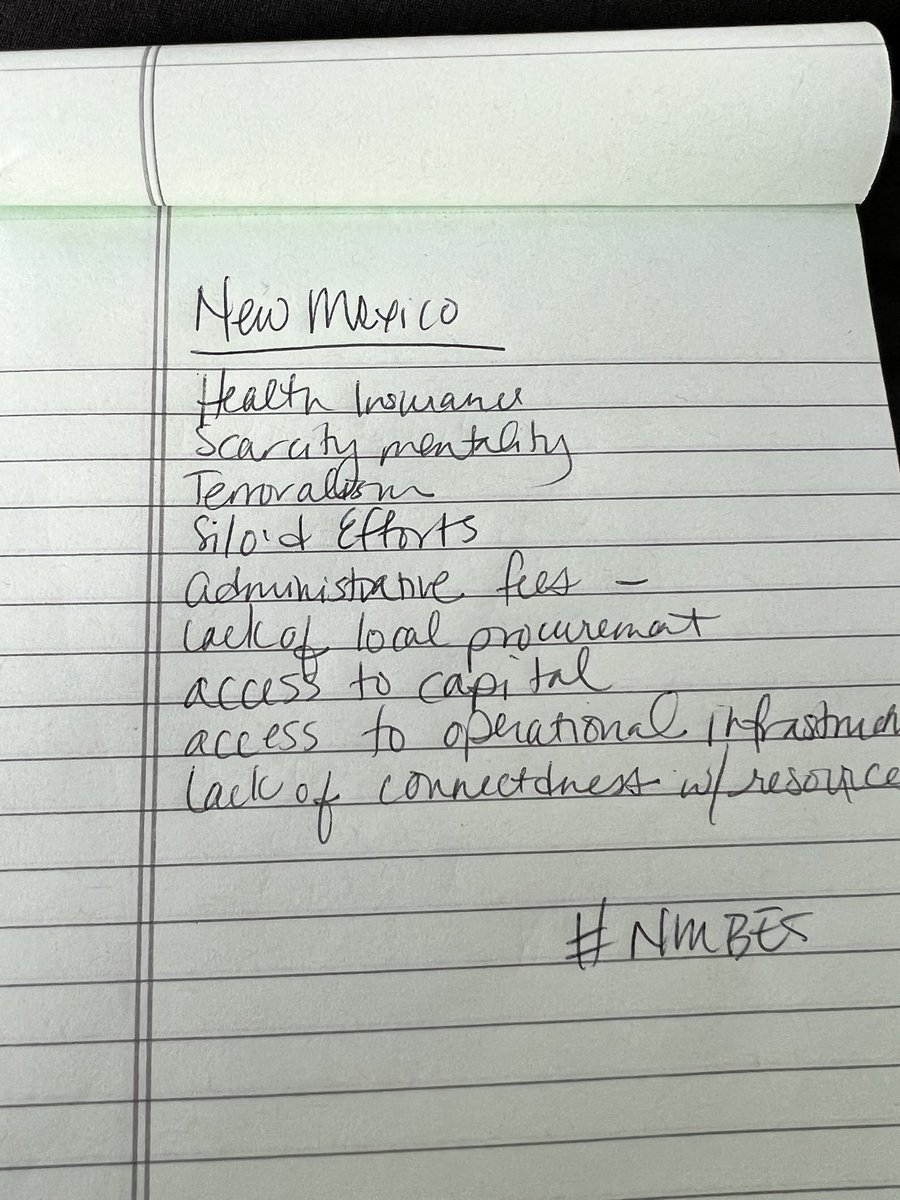 New Mexico
Health Insurance
Scarcity mentality
Siloid Efforts
administrative fees –
lack of local procurement
access to capital
access to operational infrastruc
lack of connectdness w/ resource
#NMBES